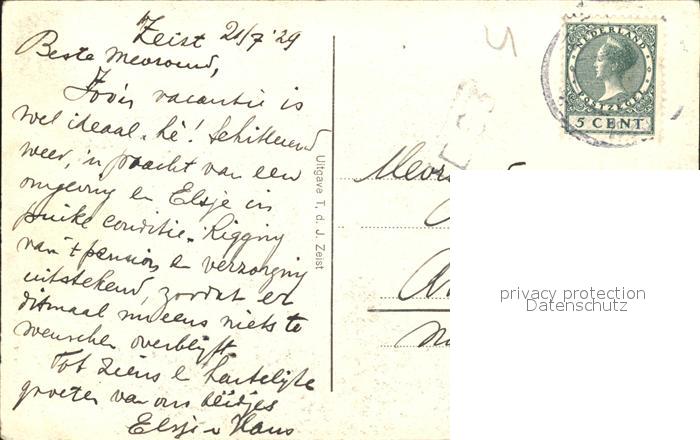 Zeist 21/7 '29
Beste Mevrouw,
Zoo'n vacantie is
wel ideaal, hè! Schitterend
weer, 'n pracht van een
omgeving en Elsje in
puike conditie. Ligging
van 't pension en verzorging
uitstekend, zoodat er
ditmaal nu eens niets te
wenschen overblijft.
Tot ziens en hartelijke
groeten van ons beidjes
Elsje en Hans
Uitgave T. d. J. Zeist
NEDERLAND
POSTZEGEL
5 CENT
privacy protection
Datenschutz